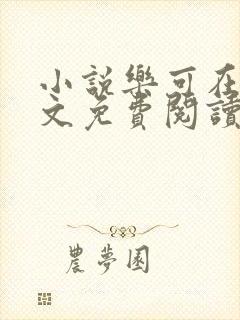 小說樂可在
文免費閱讀
農夢園